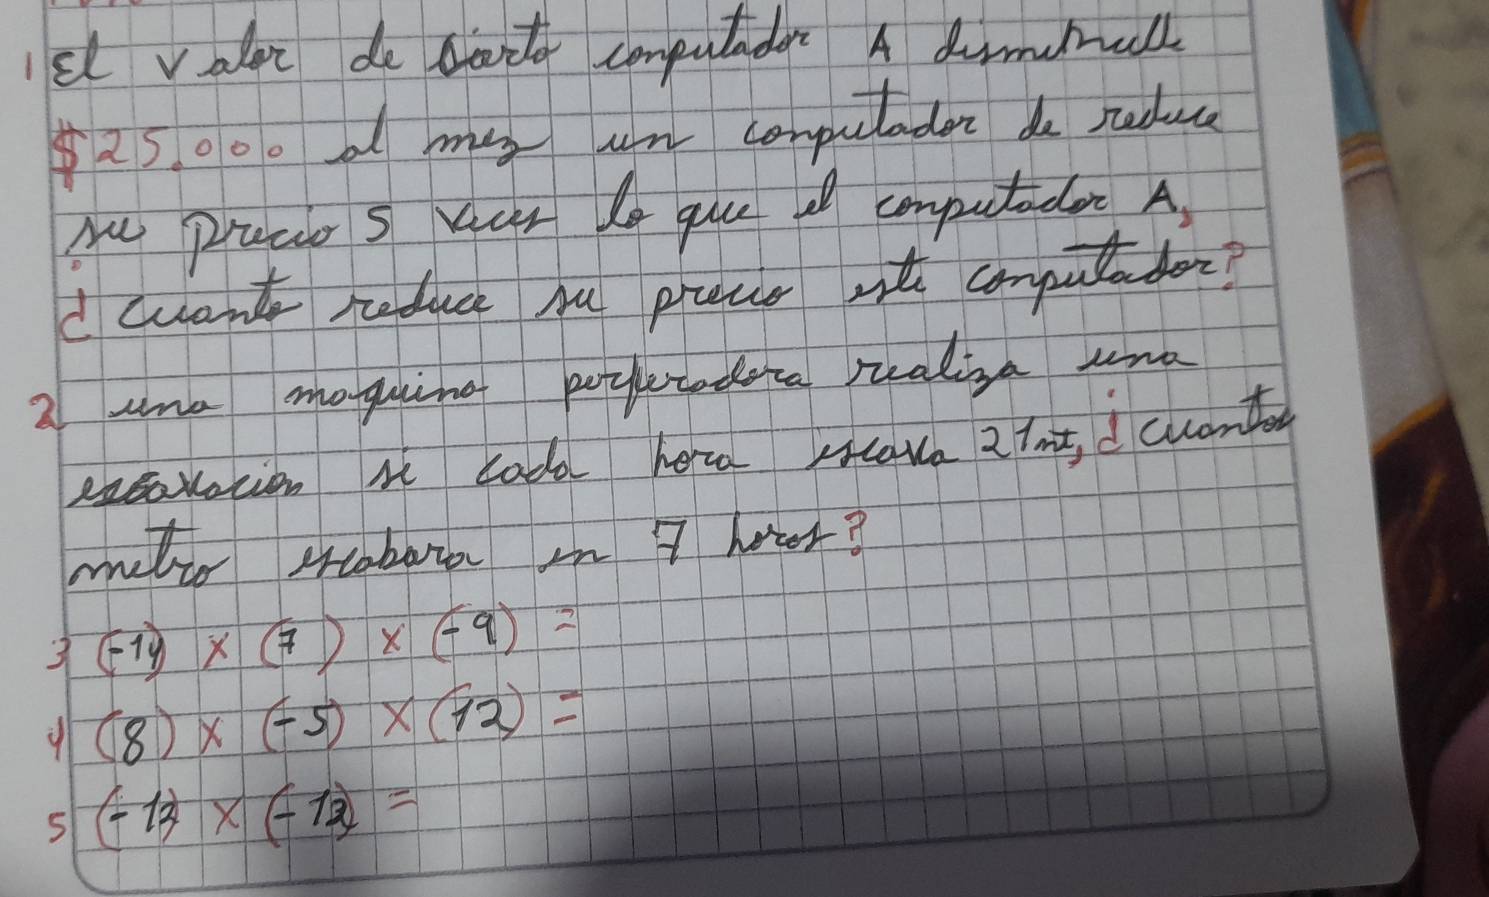 1 El valor de sierto computador A dismitnulle
$25.000 al mez un computador de reduce
su precio 5 veces lo que el computador A,
¿cuanto reduce su precio este computador?
2 una maquina perferadora realiza una
escavacion si cada hora escava 21mt, ¿cuantos
metro escabara en 7 horas?
3 (-14) x (7) x (-9) =
4 (8) x (-5) x (12) =
5 (-13) x (-12) =